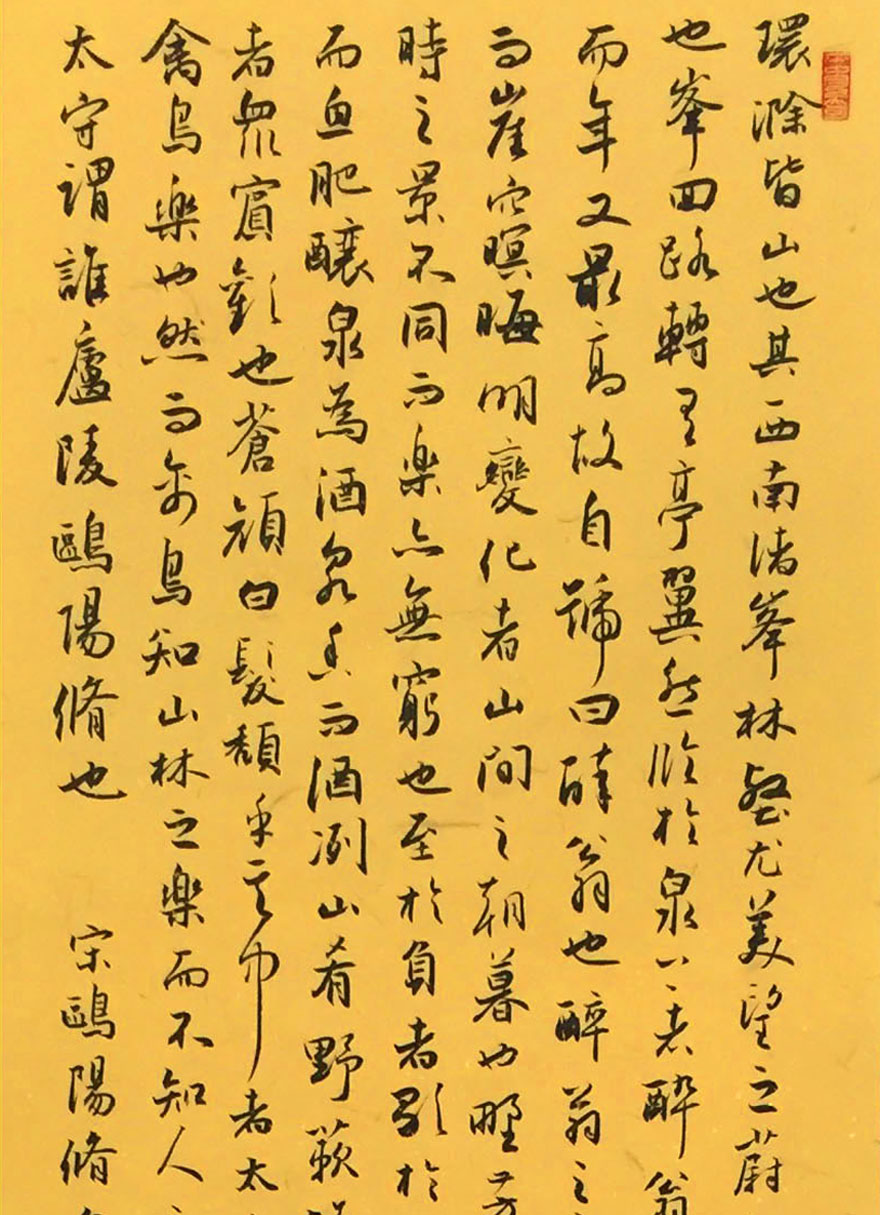 環滁皆山也其西南諸峯林壑尤美望之蔚
也峯回路轉有亭翼然臨於泉上者醉翁
而年又最高故自號曰醉翁也醉翁之
而崖穴暝晦明變化者山間之朝暮也野芳
時之景不同而樂亦無窮也至於負者歌於
而魚肥釀泉為酒泉香而酒冽山肴野蔌
者眾賓歡也蒼顏白髮頹乎其中者太
禽鳥樂也然而禽鳥知山林之樂而不知人
太守謂誰廬陵鷗陽脩也 宋鷗陽脩